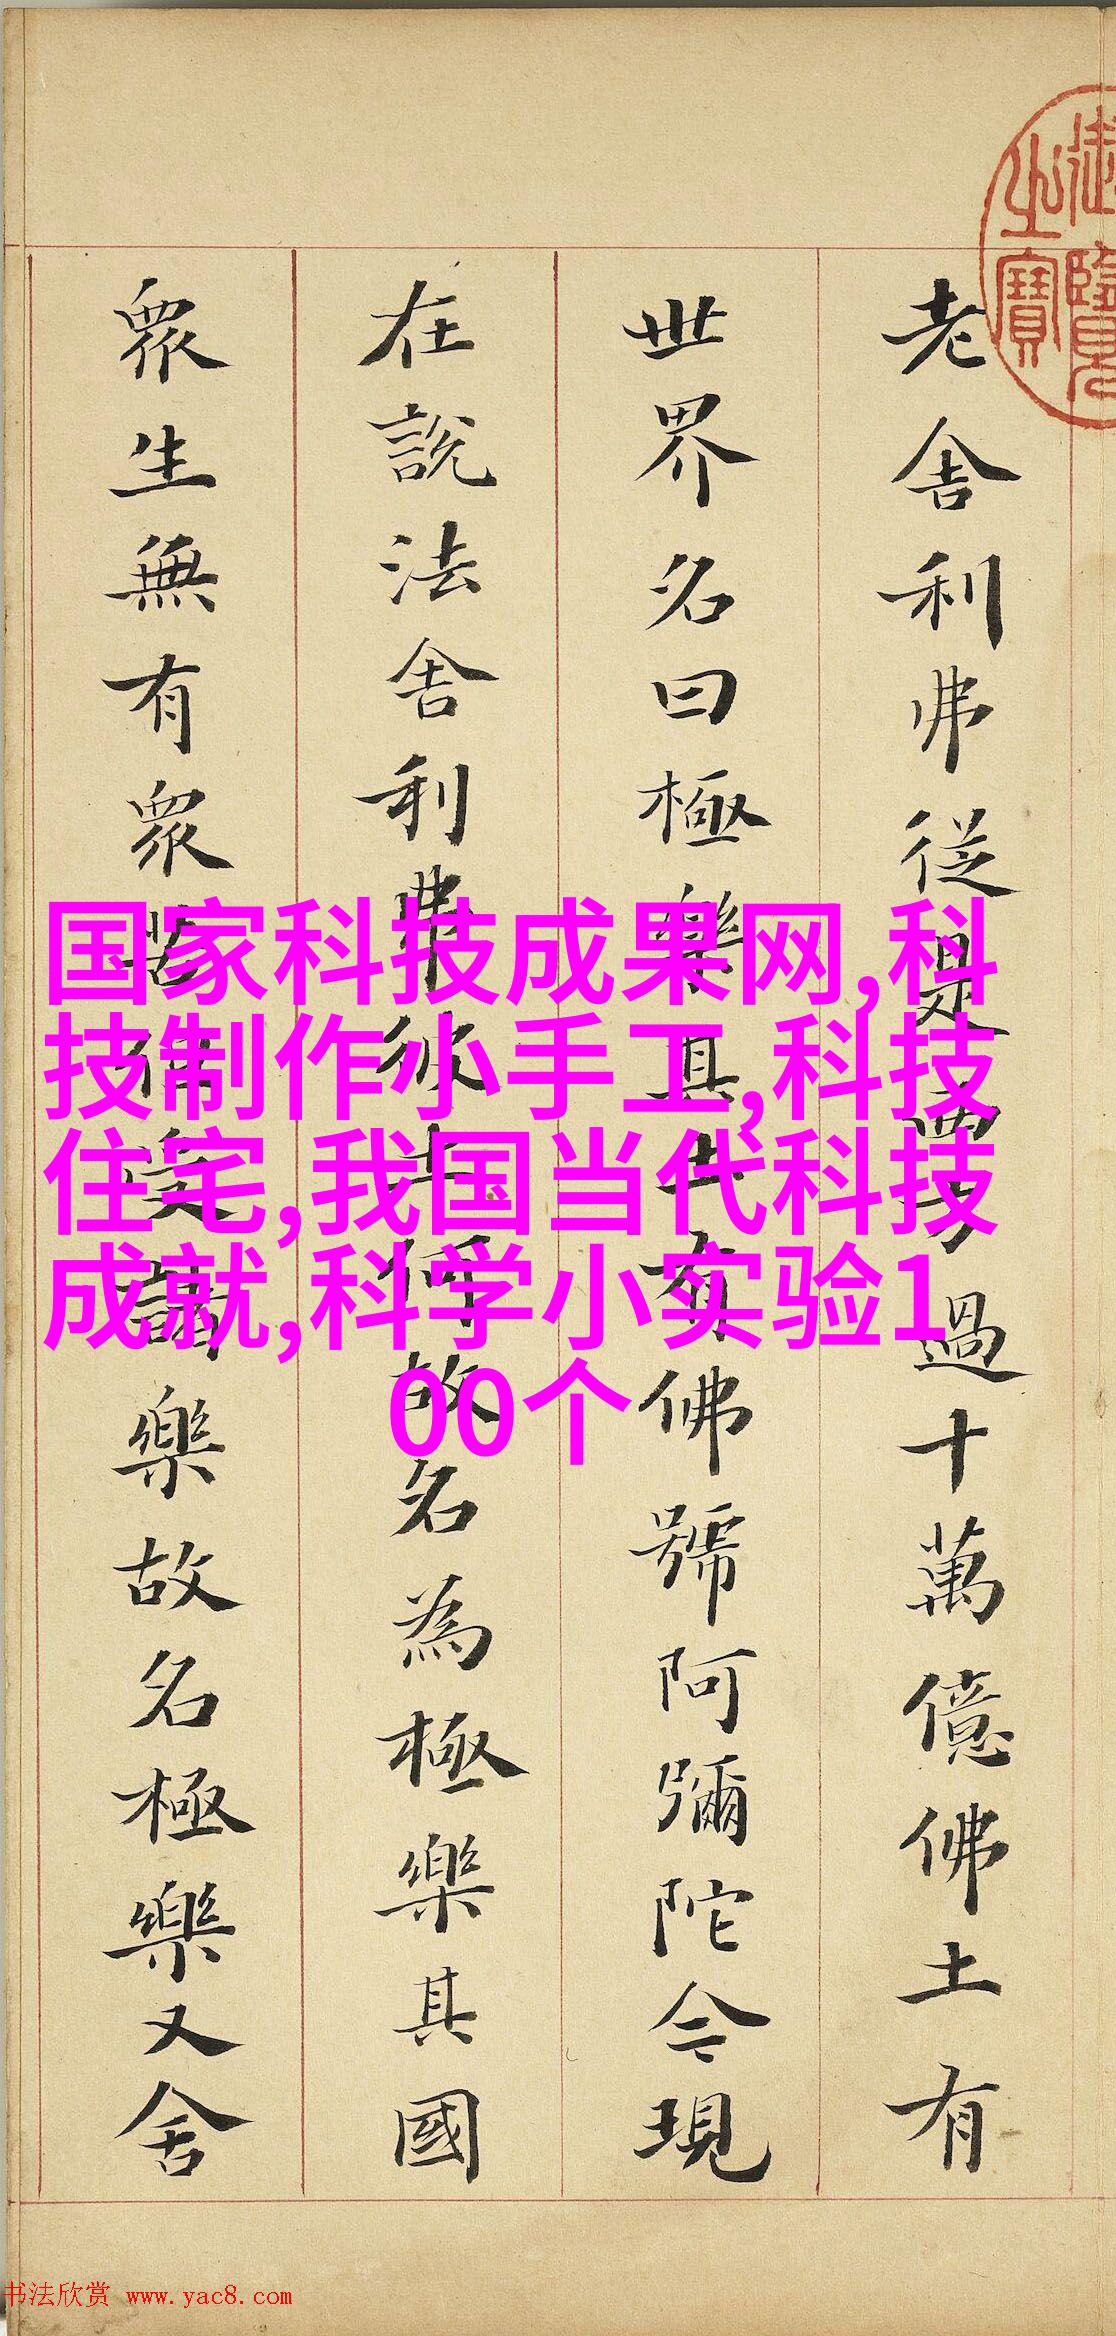 老舍利弗從是西方過十萬億佛土有
世界名曰極樂其土有佛號阿彌陀今現
在說法舍利弗彼土何故名為極樂其國
眾生無有眾苦但受諸樂故名極樂又舍
御覽之寶
国家科技成果网,科
技制作小手工,科技
住宅,我国当代科技
成就,科学小实验1
00个
书法欣赏 www.yac8.com